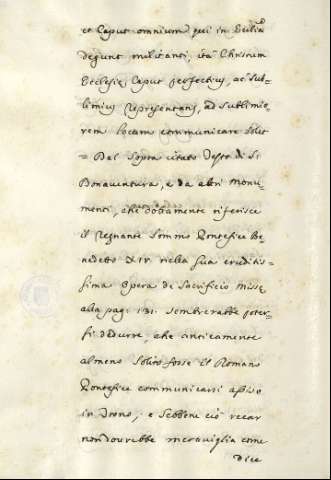 et Caput omnium qui in Ecclia
degunt militanti, ita Christum
Ecclesiæ Caput perfectius, ac sub-
limius representans, ad sublimio-
rem locum communicare debet
= Dal sopra citato Testo di S.
Bonaventura, e da altri Monu-
menti, che dottamente riferisce
il Regnante Sommo Pontefice Be-
nedetto XIV nella sua eruditis-
sima Opera de Sacrificio Missę
alla pag: 131. sembrerebbe poter-
si dedurre, che anticamente
almeno solito fosse il Romano
Pontefice communicarsi assiso
in Trono; e sebbene ciò recar
non dovrebbe meraviglia come
dice